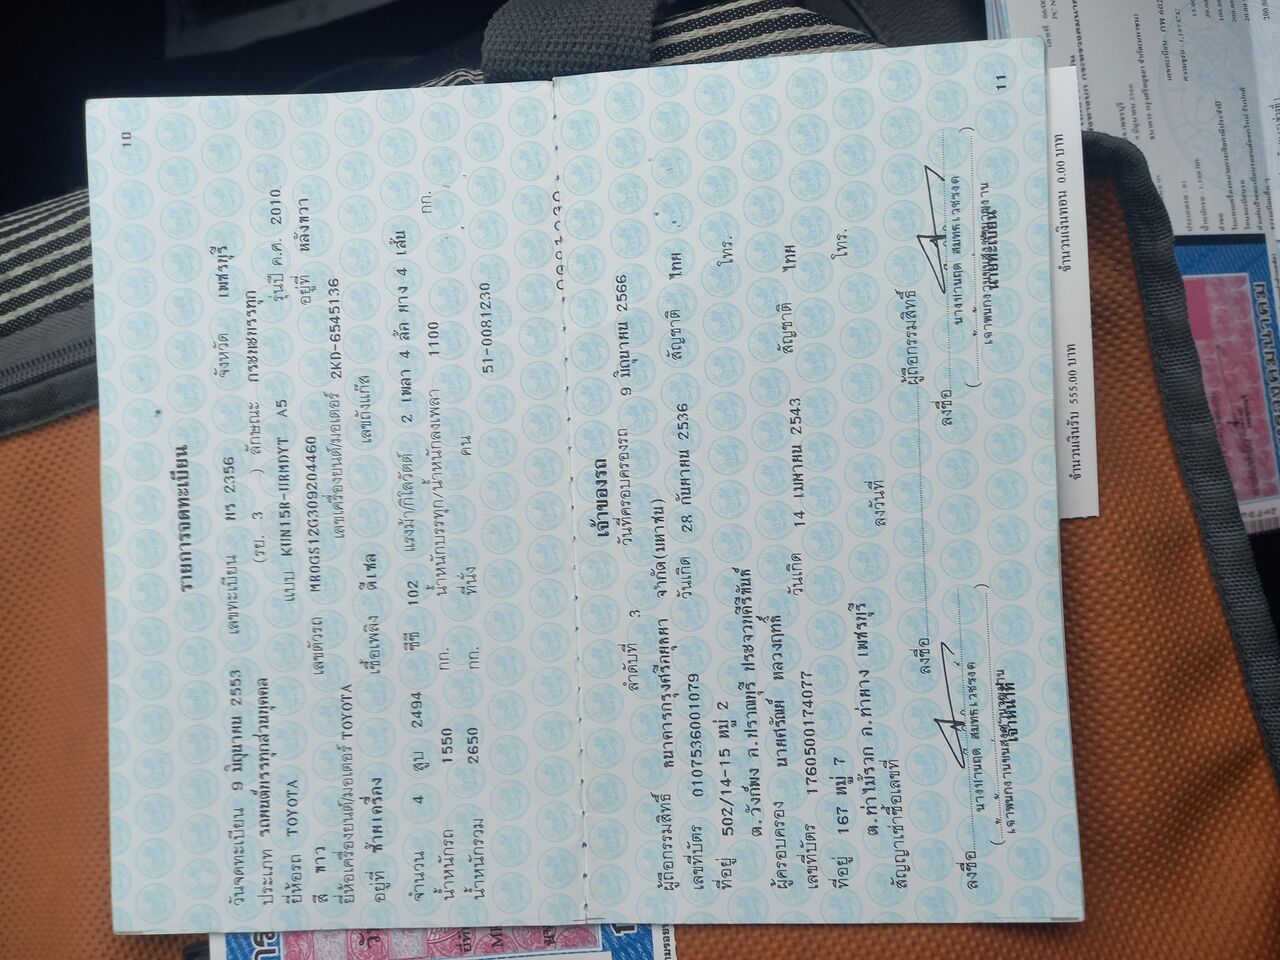 10
รายการจดทะเบียน
วันจดทะเบียน 9 มิถุนายน 2553 เลขทะเบียน 2356 จังหวัด เพชรบุรี
ประเภท รถยนต์บรรทุกส่วนบุคคล (รย. 3 ) ลักษณะ กระบะบรรทุก
ยี่ห้อรถ TOYOTA แบบ KUN15R-URMDYT A5 รุ่นปี ค.ศ. 2010
สี ขาว เลขตัวรถ MR0GS12G309204460 อยู่ที่ หลังขวา
ยี่ห้อเครื่องยนต์/มอเตอร์ TOYOTA เลขเครื่องยนต์/มอเตอร์ 2KD-6545136
อยู่ที่ ซ้ายเครื่อง เชื้อเพลิง ดีเซล เลขถังแก๊ส
จำนวน 4 สูบ 2494 ซีซี 102 แรงม้า/กิโลวัตต์ 2 เพลา 4 ล้อ ยาง 4 เส้น
น้ำหนักรถ 1550 กก. น้ำหนักบรรทุก/น้ำหนักลงเพลา 1100 กก.
น้ำหนักรวม 2650 กก. ที่นั่ง คน
51-0081230
11
เจ้าของรถ
ลำดับที่ 3 วันที่ครอบครองรถ 9 มิถุนายน 2566
ผู้ถือกรรมสิทธิ์ ธนาคารกรุงศรีอยุธยา จำกัด(มหาชน)
เลขที่บัตร 0107536001079 วันเกิด 28 กันยายน 2536 สัญชาติ ไทย
ที่อยู่ 502/14-15 หมู่ 2
ต.วังก์พง อ.ปราณบุรี ประจวบคีรีขันธ์ โทร.
ผู้ครอบครอง นายศรัณย์ หลวงฤทธิ์
เลขที่บัตร 1760500174077 วันเกิด 14 เมษายน 2543 สัญชาติ ไทย
ที่อยู่ 167 หมู่ 7
ต.ท่าไม้รวก อ.ท่ายาง เพชรบุรี โทร.
สัญญาเช่าซื้อเลขที่ ลงวันที่
ลงชื่อ ผู้ถือกรรมสิทธิ์
ลงชื่อ ลงชื่อ
เจ้าหน้าที่ นายทะเบียน
จำนวนเงินรับ 555.00 บาท จำนวนเงินทอน 0.00 บาท